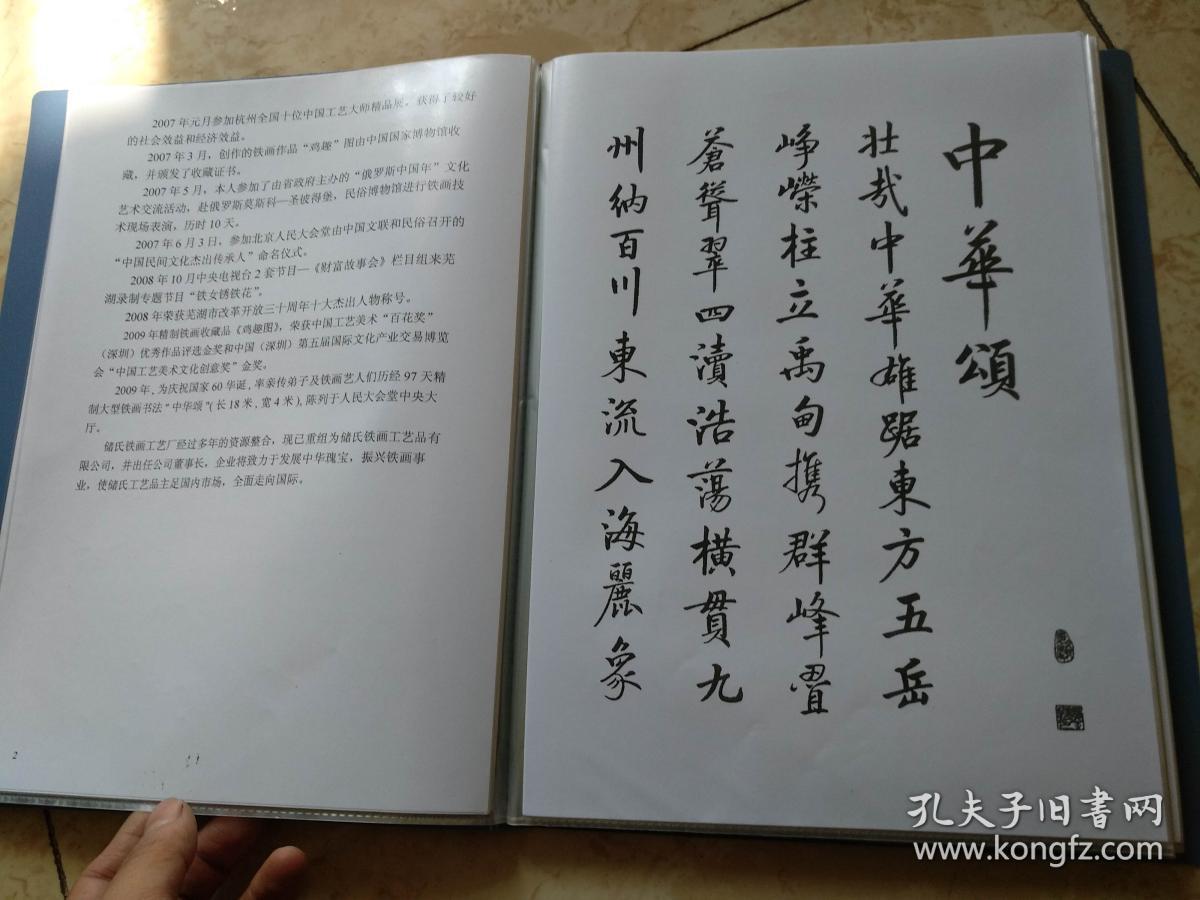 2007年元月参加杭州全国十位中国工艺大师精品展，获得了较好
的社会效益和经济效益。
2007年3月，创作的铁画作品“鸡趣”图由中国国家博物馆收
藏，并颁发了收藏证书。
2007年5月，本人参加了由省政府主办的“俄罗斯中国年”文化
艺术交流活动，赴俄罗斯莫斯科—圣彼得堡，民俗博物馆进行铁画技
术现场表演，历时10天。
2007年6月3日，参加北京人民大会堂由中国文联和民俗召开的
“中国民间文化杰出传承人”命名仪式。
2008年10月中央电视台2套节目—《财富故事会》栏目组来芜
湖录制专题节目“铁女锈铁花”。
2008年荣获芜湖市改革开放三十周年十大杰出人物称号。
2009年精制铁画收藏品《鸡趣图》，荣获中国工艺美术“百花奖”
（深圳）优秀作品评选金奖和中国（深圳）第五届国际文化产业交易博览
会“中国工艺美术文化创意奖”金奖。
2009年、为庆祝国家60华诞，率亲传弟子及铁画艺人们历经97天精
制大型铁画书法“中华颂”(长18米、宽4米)，陈列于人民大会堂中央大
厅。
储氏铁画工艺厂经过多年的资源整合，现已重组为储氏铁画工艺品有
限公司，并出任公司董事长，企业将致力于发展中华瑰宝，振兴铁画事
业，使储氏工艺品主足国内市场，全面走向国际。
2
中華頌
壮哉中華雄踞東方五岳
峥嶸柱立禹甸携群峰畳
蒼聳翠四瀆浩蕩横貫九
州納百川東流入海麗象
孔夫子旧書网
www.kongfz.com